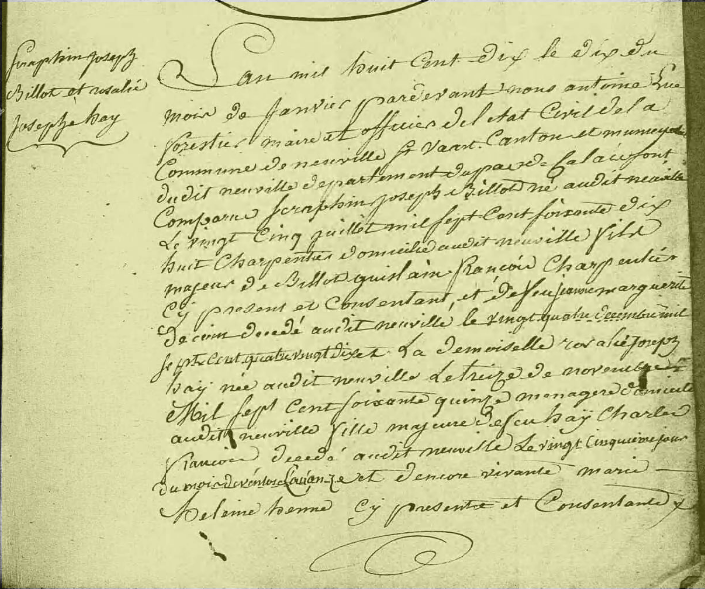 Seraphin Joseph
Billot et rosalie
Josephe hay
L'an mil huit Cent dix le dix du
mois de Janvier pardevant nous antoine Luc
forestier maire et officier de l'etat Civil de la
Commune de neuville St Vaast Canton et municipalité
dudit neuville departement du pas de Calais sont
Comparu Seraphin Joseph Billot né audit neuville
Le vingt Cinq juillet mil sept Cent soixante dix
huit Charpentier domicilié audit neuville fils
majeur de Billot guislain francois Charpentier
Cy present et Consentant, et de feu jeanne marguerite
decoin decedé audit neuville le vingt quatre decembre mil
sept Cent quatre vingt dix et La demoiselle rosalie Joseph
hay née audit neuville Le treize de novembre
Mil sept Cent soixante quinze menagere domiciliée
audit neuville fille majeure de feu hay Charles
francois decedé audit neuville Le vingt Cinquieme jour
du mois de ventose L'an onze et d'encore vivante marie
heleine henne Cy presente et Consentante